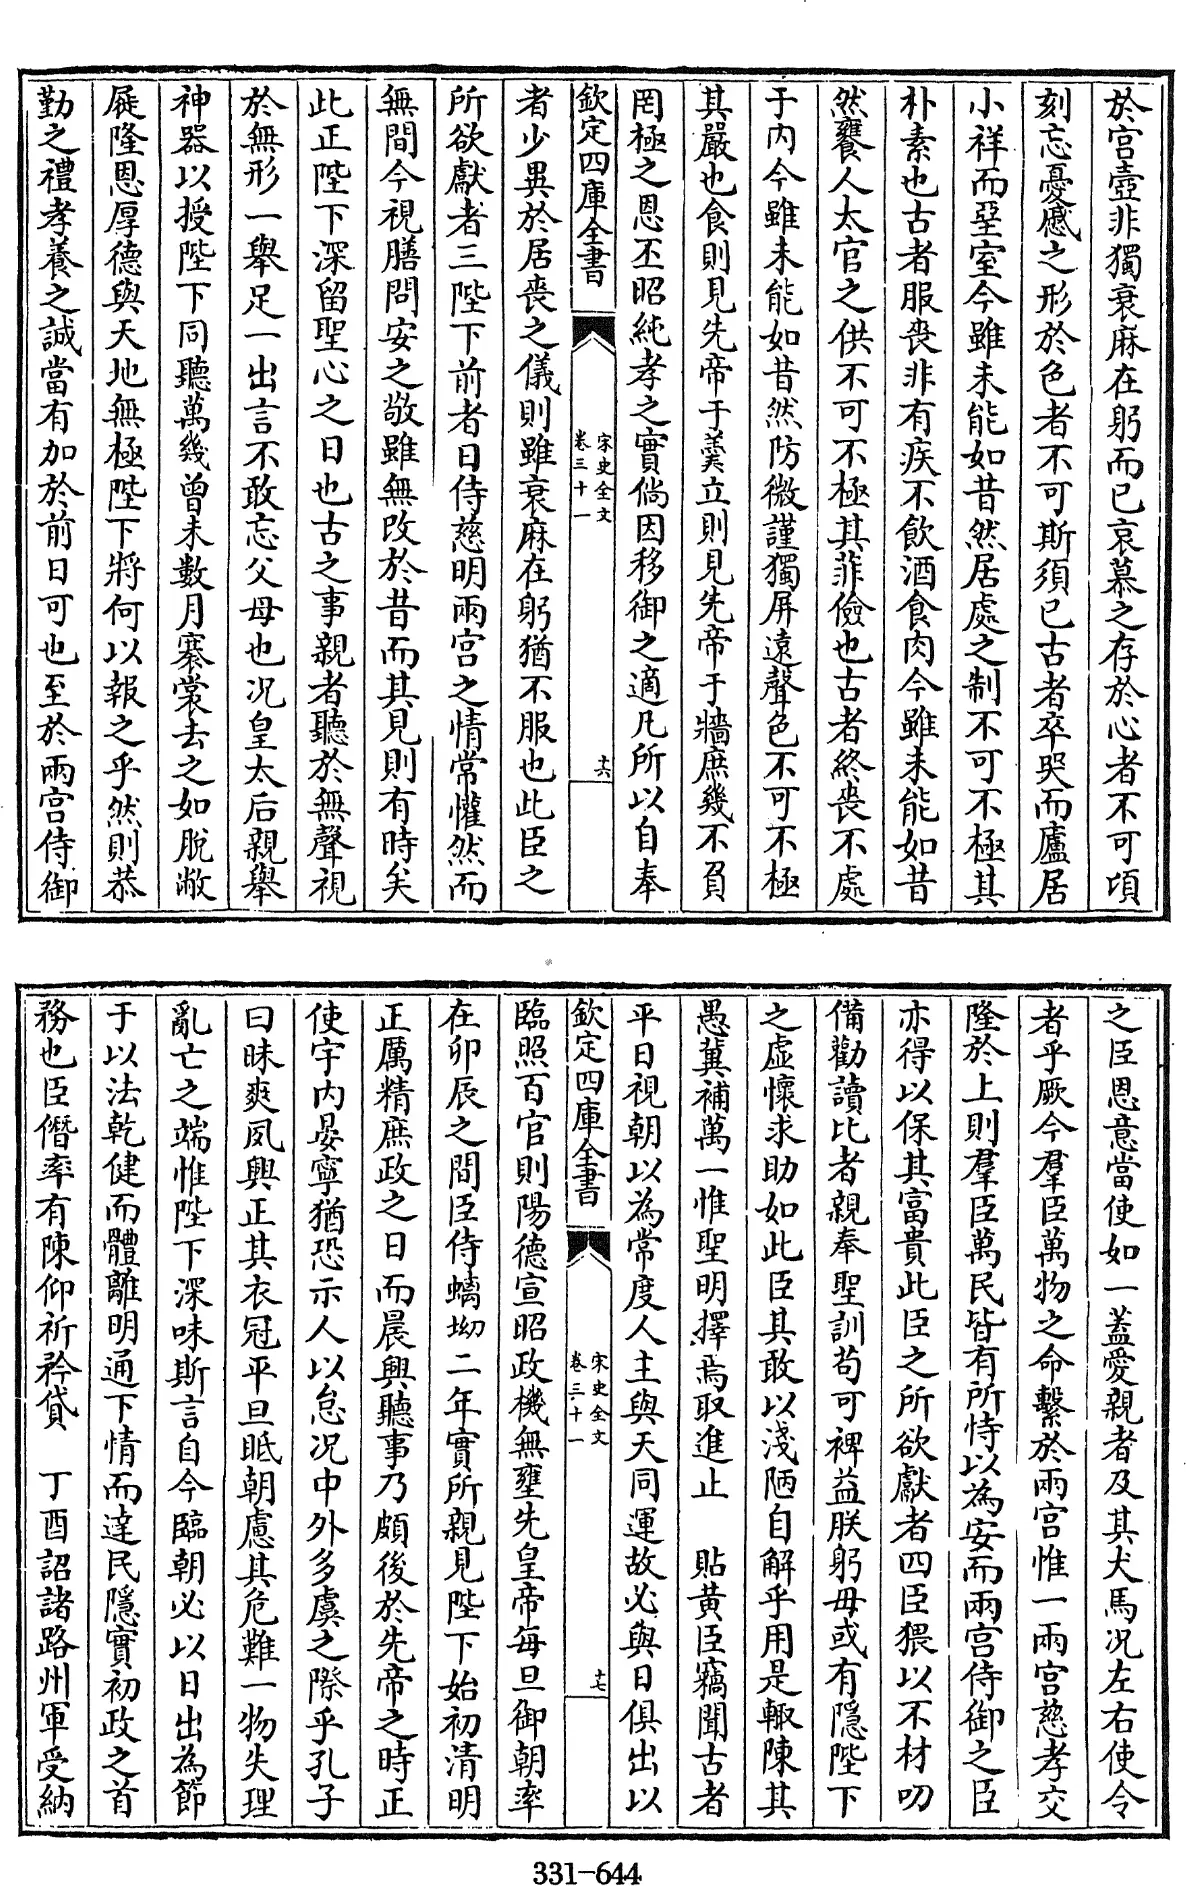 於宫壼非獨衰麻在躬而已哀慕之存於心者不可頃
刻忘憂慼之形於色者不可斯須已古者卒哭而廬居
小祥而堊室今雖未能如昔然居處之制不可不極其
朴素也古者服喪非有疾不飲酒食肉今雖未能如昔
然饔人太官之供不可不極其菲儉也古者終喪不處
于内今雖未能如昔然防微謹獨屏遠聲色不可不極
其嚴也食則見先帝于羮立則見先帝于牆庶幾不負
罔極之恩丕昭純孝之實倘因移御之適凡所以自奉
欽定四庫全書
宋史全文
卷三十一
十六
者少異於居喪之儀則雖衰麻在躬猶不服也此臣之
所欲獻者三陛下前者日侍慈明兩宫之情常懽然而
無間今視膳問安之敬雖無改於昔而其見則有時矣
此正陛下深留聖心之日也古之事親者聽於無聲視
於無形一舉足一出言不敢忘父母也况皇太后親舉
神器以授陛下同聽萬幾曾未數月褰裳去之如脫敝
屣隆恩厚德與天地無極陛下將何以報之乎然則恭
勤之禮孝養之誠當有加於前日可也至於兩宫侍御
之臣恩意當使如一蓋愛親者及其犬馬况左右使令
者乎厥今羣臣萬物之命繫於兩宫惟一兩宫慈孝交
隆於上則羣臣萬民皆有所恃以為安而兩宫侍御之臣
亦得以保其富貴此臣之所欲獻者四臣猥以不材叨
備勸讀比者親奉聖訓茍可裨益朕躬毋或有隱陛下
之虛懷求助如此臣其敢以淺陋自解乎用是輙陳其
愚冀補萬一惟聖明擇焉取進止　貼黄臣竊聞古者
平日視朝以為常度人主與天同運故必與日俱出以
欽定四庫全書
宋史全文
卷三十一
十七
臨照百官則陽德宣昭政機無壅先皇帝每旦御朝率
在卯辰之間臣侍螭坳二年實所親見陛下始初清明
正厲精庶政之日而晨興聽事乃頗後於先帝之時正
使宇内晏寧猶恐示人以怠况中外多虞之際乎孔子
曰昧爽夙興正其衣冠平旦眡朝慮其危難一物失理
亂亡之端惟陛下深味斯言自今臨朝必以日出為節
于以法乾健而體離明通下情而達民隱實初政之首
務也臣僭率有陳仰祈矜貸　丁酉詔諸路州軍受納
331-644